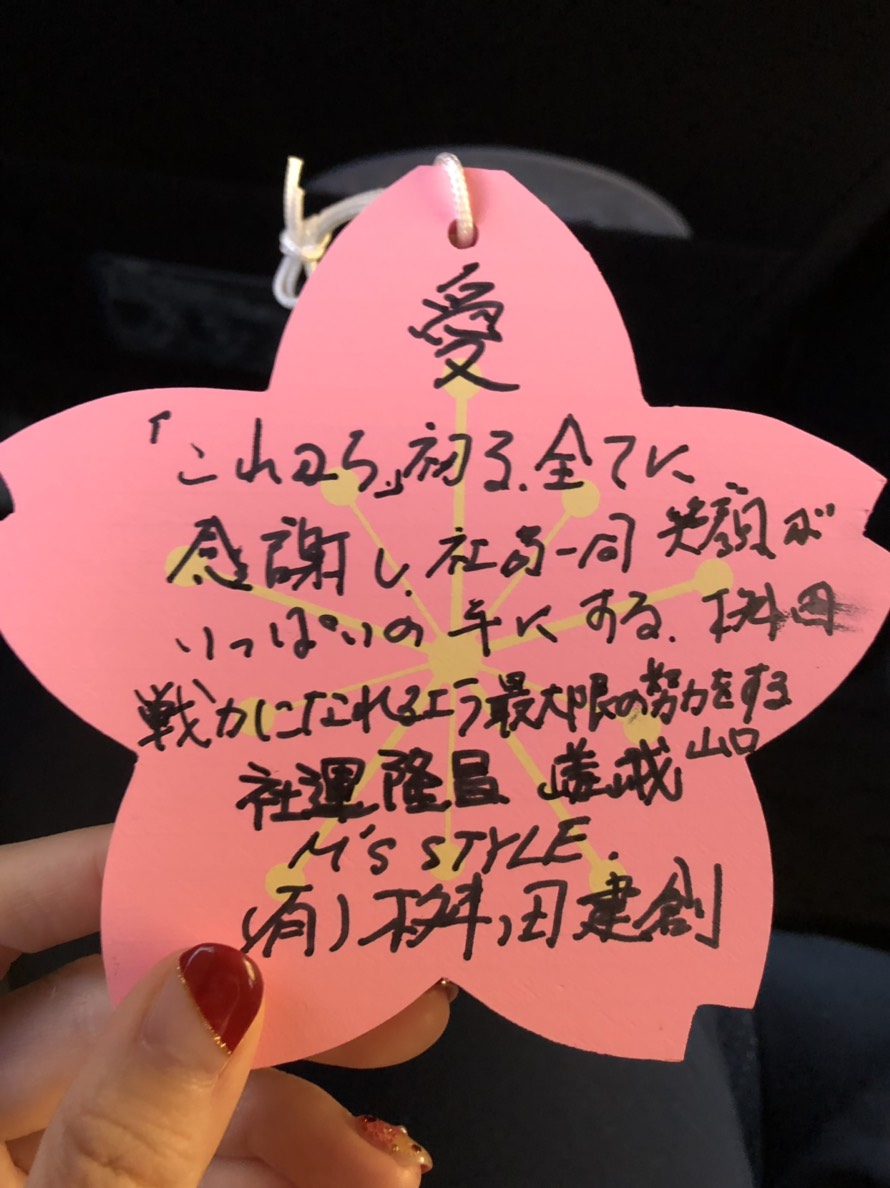 愛
「これから」初る、全てに
感謝し、社員一同 笑顔が
いっぱいの年にする。桝田
戦力になれるよう最大限の努力をする
山口
社運隆昌
M's STYLE.
(有)桝田建創